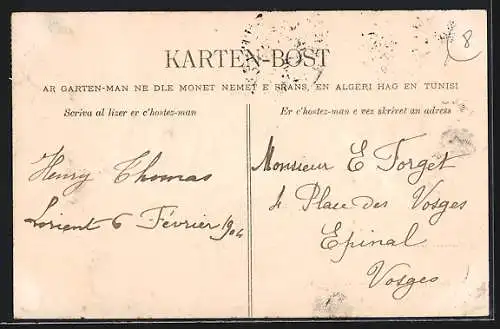 8
KARTEN-BOST
AR GARTEN-MAN NE DLE MONET NEMET E FRANS, EN ALGERI HAG EN TUNISI
Scriva al lizer er c'hostez-man
Er c'hostez-man e vez skrivet an adress
Henry Thomas
Lorient 6 Février 1904
Monsieur E Forget
4 Place des Vosges
Epinal
Vosges